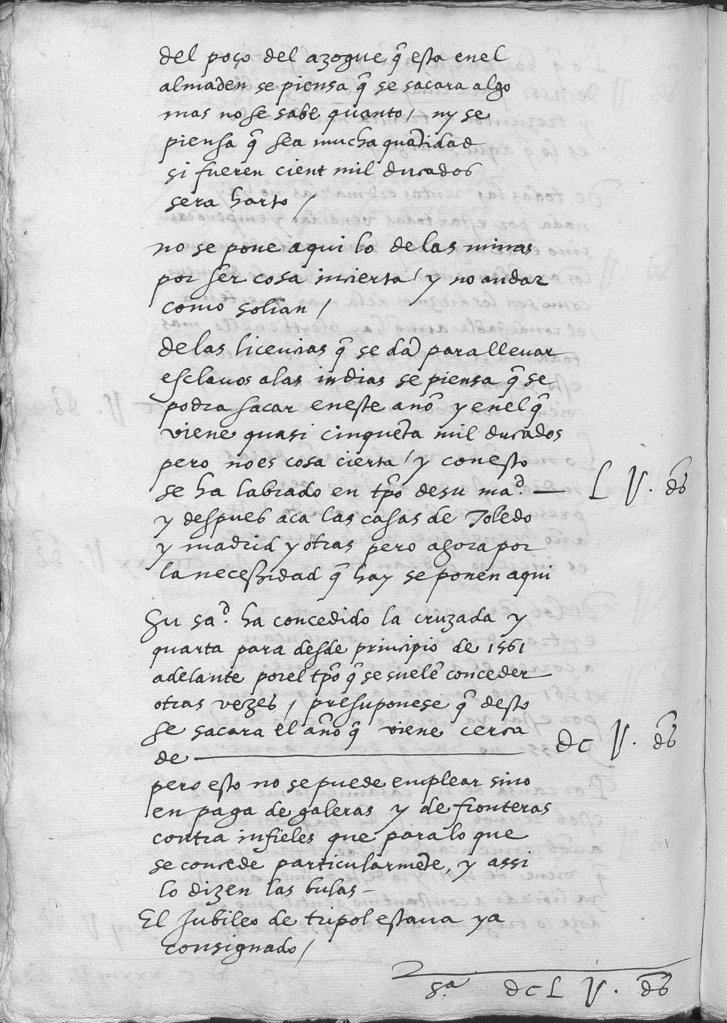 del poço del azogue q̃ esta en el
almaden se piensa q̃ se sacara algo
mas no se sabe quanto / ny se
piensa q̃ sea mucha quãtidad
si fueren cient mil ducados
sera harto /
no se pone aqui lo de las minas
por ser cosa incierta / y no andar
como solian /
de las licencias q̃ se dã para lleuar
esclauos a las indias se piensa q̃ se
podra sacar en este año y en el q̃
viene quasi cinquẽta mil ducados
pero no es cosa cierta / y con esto
se ha labrado en tpõ de su mad. — L U. ds
y despues aca las casas de Toledo
y madrid y otras pero agora por
la necessidad q̃ hay se ponen aqui
Su sad. ha concedido la cruzada y
quarta para desde principio de 1561
adelante por el tpõ q̃ se suelẽ conceder
otras vezes / presuponese q̃ desto
se sacara el año q̃ viene cerca
de — dc U. ds
pero esto no se puede emplear sino
en paga de galeras y de fronteras
contra infieles que para lo que
se concede particularmẽte, y assi
lo dizen las bulas –
El Jubileo de tripol estaua ya
consignado /
Sa. dc L U. ds